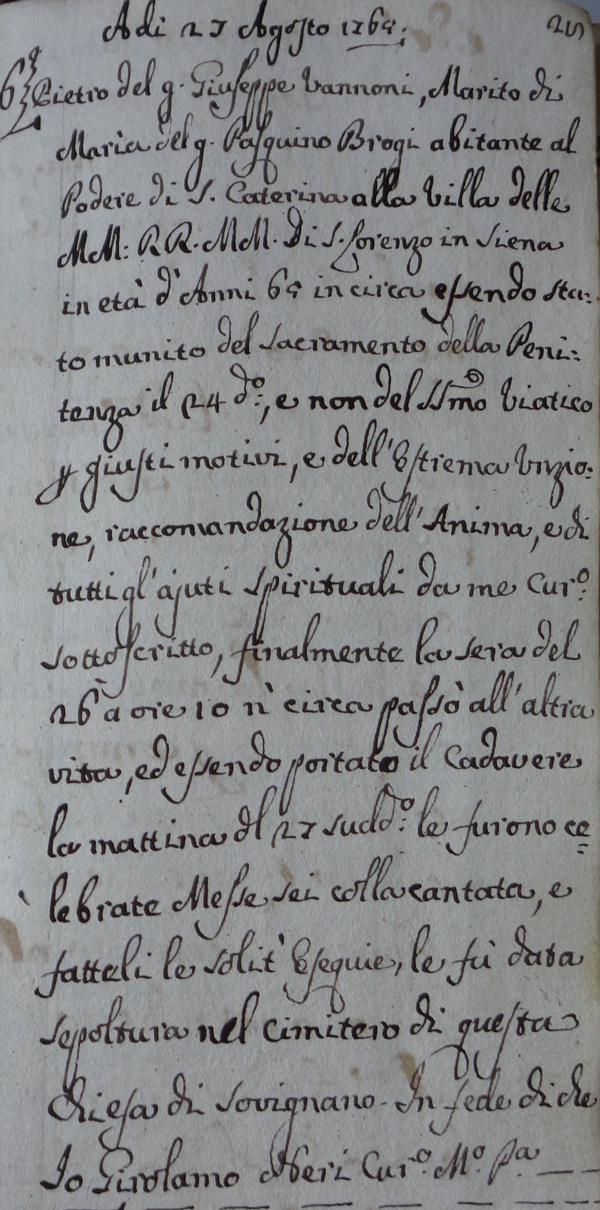 Adi 27 Agosto 1765: 25
6 Pietro del q. Giuseppe Vannoni, Marito di
Maria del q. Pasquino Brogi abitante al
Podere di S. Caterina alla Villa delle
MM: RR. MM. di S. Lorenzo in Siena
in età d'Anni 65 in circa essendo sta:
to munito del Sacramento della Peni:
tenza il 24 do:, e non del SSmo Viatico
p giusti motivi, e dell'Estrema Unzio:
ne, raccomandazione dell'Anima, e di
tutti gl'ajuti Spirituali da me Curo:
sottoscritto, finalmente la sera del
26 a ore 10 n' circa passò all'altra
vita, ed essendo portato il Cadavere
la mattina dl 27 suddo: le furono ce
lebrate Messe sei colla cantata, e
fatteli le solit' Esequie, le fù data
sepoltura nel cimitero di questa
Chiesa di Sovignano. In fede di che
Io Girolamo Curo. Mo. Pa